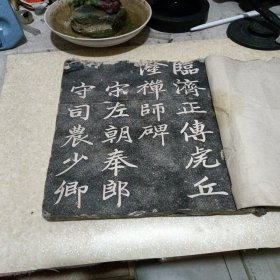 臨濟正傳虎丘
隆禪師碑
宋左朝奉郎
守司農少卿